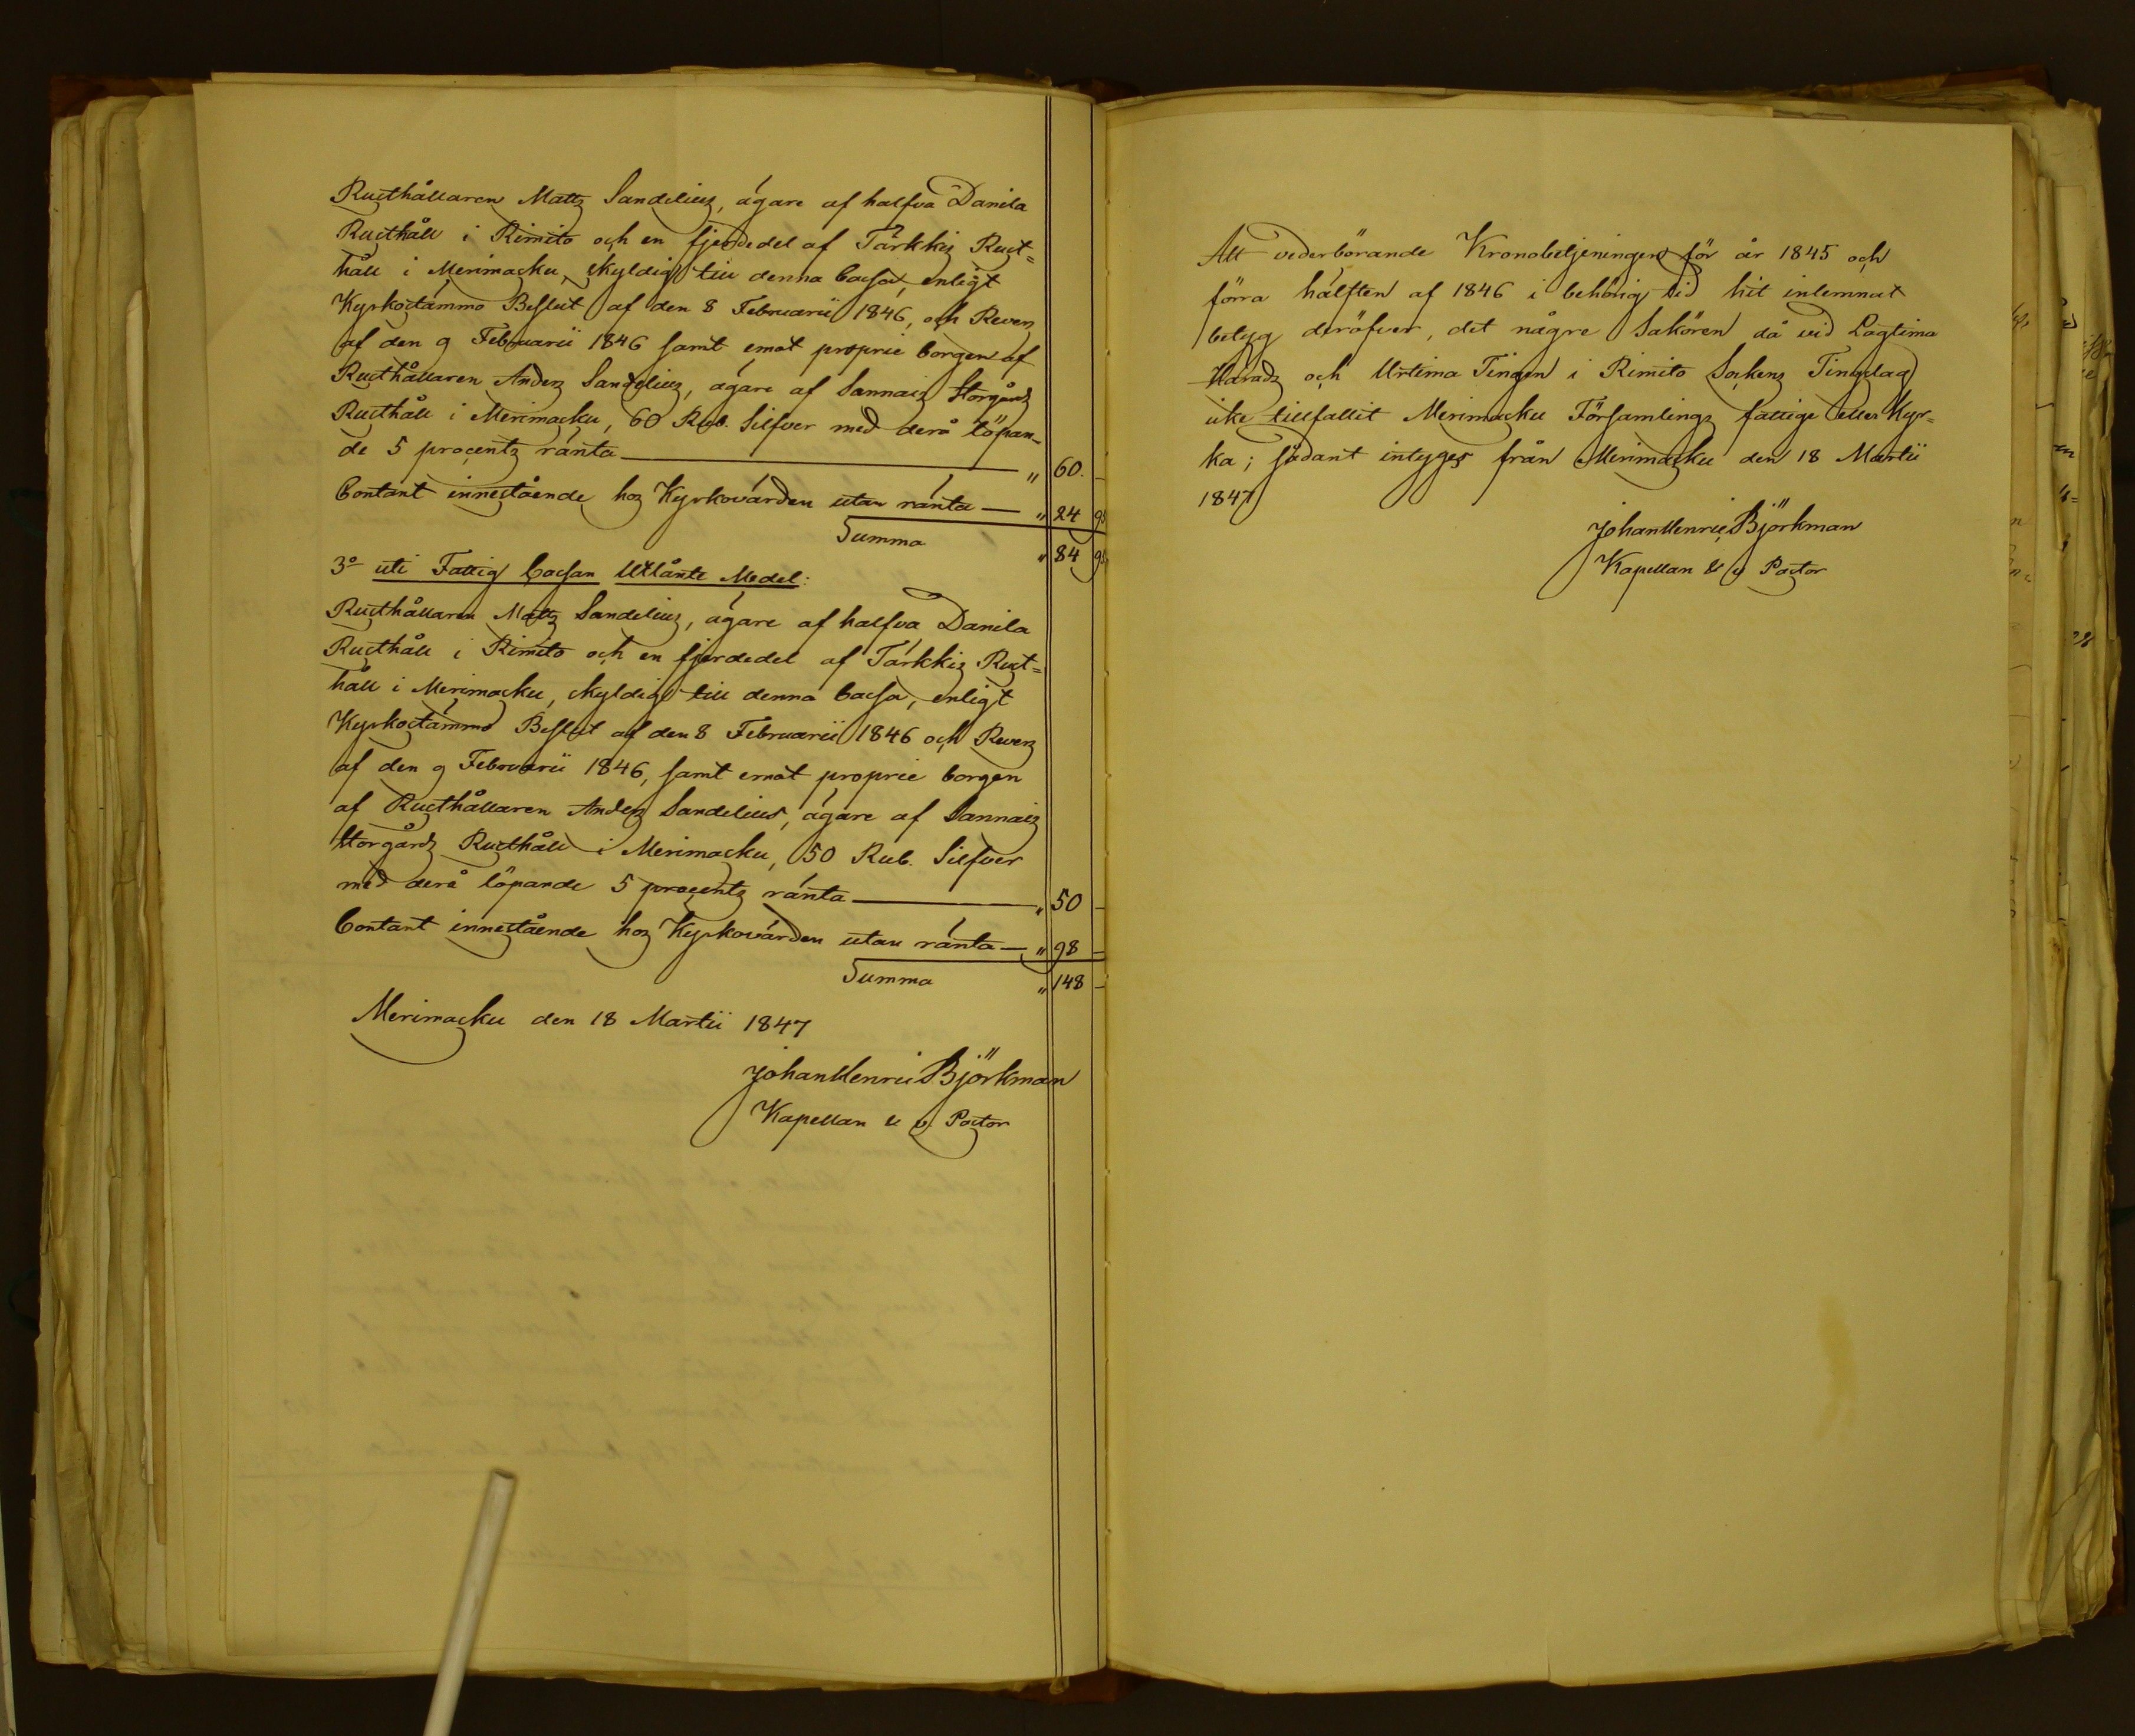 Rusthållaren Matts Sandelius, ägare af halfva Danila
Rusthåll i Rimito och en fjerdedel af Tärkkis Rust=
håll i Merimasku, skyldig till denna Cassa, enligt
Kyrkostämmo Beslut af den 8 Februarii 1846, och Revers
af den 9 Februarii 1846 samt emot proprie borgen af
Rusthållaren Anders Sandelius, ägare af Sannais Storgårds
Rusthåll i Merimasku, 60 Rub. Silfver med derå löpan-
de 5 procents ränta — " 60. —
Contant innestående hos Kyrkovärden utan ränta — " 24 95
Summa " 84 95
3º uti Fattig Cassan Utlånte Medel:
Rusthållaren Matts Sandelius, ägare af halfva Danila
Rusthåll i Rimito och en fjerdedel af Tärkkis Rust=
håll i Merimasku, skyldig till denna Cassa, enligt
Kyrkostämmo Beslut af den 8 Februarii 1846 och Revers
af den 9 Februarii 1846, samt emot proprie borgen
af Rusthållaren Anders Sandelius, ägare af Sannais
Storgårds Rusthåll i Merimasku, 50 Rub. Silfver
med derå löpande 5 procents ränta — " 50 —
Contant innestående hos Kyrkovärden utan ränta — " 98 —
Summa " 148 —
Merimasku den 18 Martii 1847
Johan Henric Björkman
Kapellan & v. Pastor
Att vederbörande Kronobetjeningen för år 1845 och
förra hälften af 1846 i behörig tid hit inlemnat
betyg deröfver, det några Sakören då vid Lagtima
Härads och Urtima Tingen i Rimito Sockens Tingslag
icke tillfallit Merimasku Församlings fattige eller Kyr=
ka; sådant intygas från Merimasku den 18 Martii
1847
Johan Henric Björkman
Kapellan & v Pastor